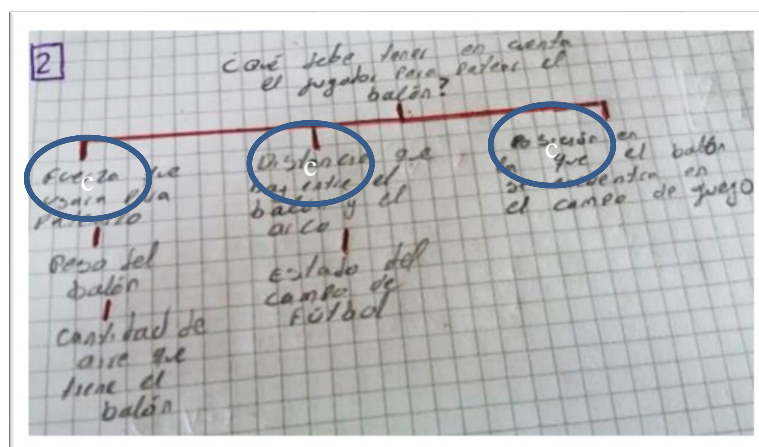 2
¿Qué debe tener en cuenta
el jugador para patear el
balón?
Fuerza que
usara para
patearlo
Peso del
balón
Cantidad de
aire que
tiene el
balón
Distancia que
hay entre el
balón y el
arco
Estado del
campo de
Fútbol
Posición en
la que el balón
se encuentra en
el campo de juego
C
C
C